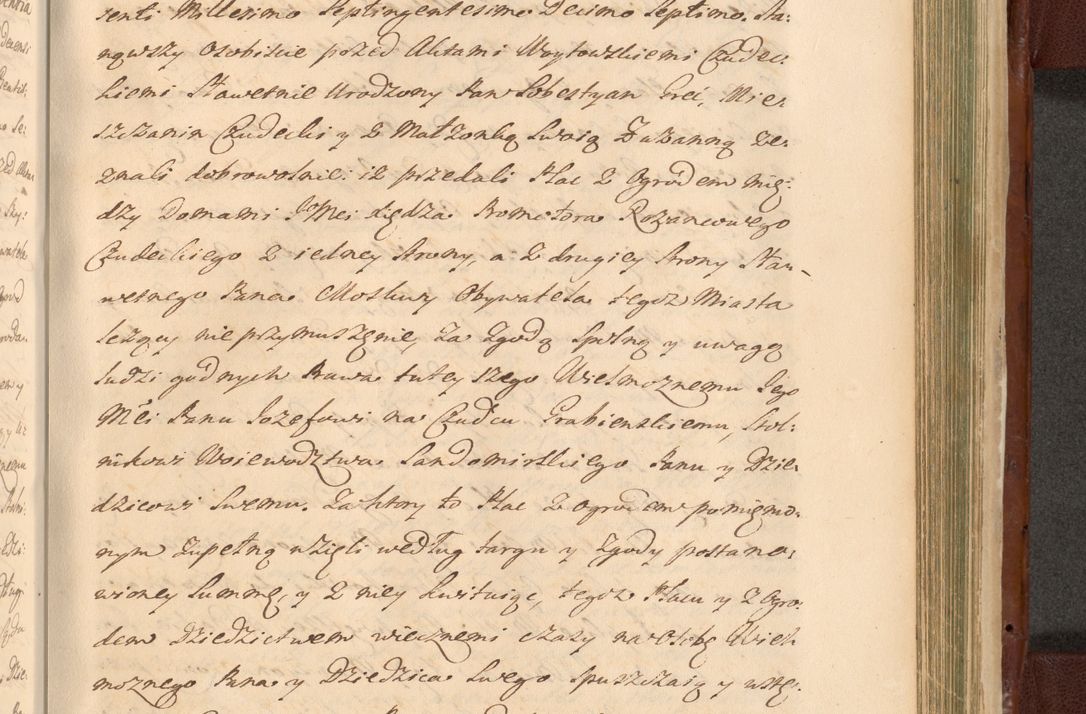 senti Millesimo Septingentesimo Decimo Septimo. Sta:
nąwszy Osobiście przed Aktami Woytowskiemi Czudec:
kiemi Sławetnie Urodzony Pan Sobestyan Greć, Mie:
szczanin Czudecki y z Małzonką Swoią Zuzanną ze:
znali dobrowolnie: iż przedali Plac z Ogrodem mię:
dzy Domami JoMci Xiędza Promotora Rozancowego
Czudeckiego z iedney strony, a z drugiey strony Sła:
wetnego Pana Mosliwy Obywatela tegoż Miasta
leżący nie przymuszęnie, za zgodą spólną y uwagą
ludzi godnych Prawa tuteyszego Wielmoznemu Jego
Mći Panu Jozefowi na Czudcu Grabienskiemu, Stol:
nikowi Woiewodztwa Sandomirskiego Panu y Dzie:
dzicowi Swemu. Za ktory to Plac z ogrodem pomięnio:
nym zupełną wzięli według targu y zgody postano:
wioney Summę, y z niey kwituiąc, tegoż Placu y z Ogro:
dem Dziedzictwem wiecznemi czasy na Osobę Wiel
moznego Pana y Dziedzica Swego spuszczaią y wstę: